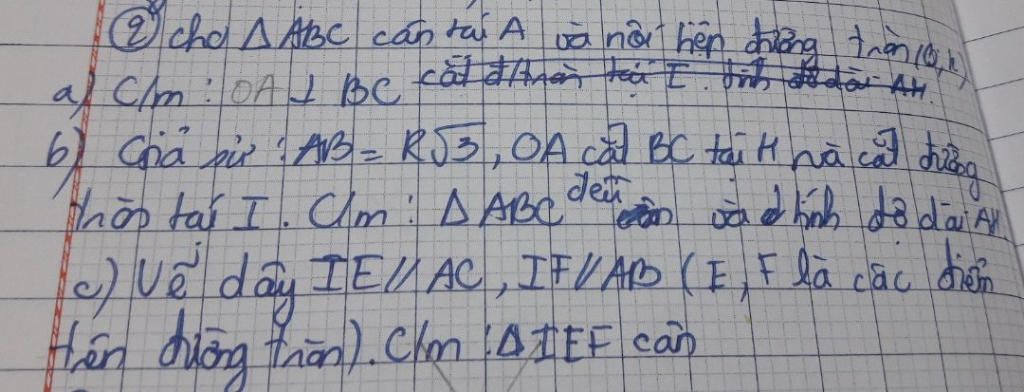 ② cho Δ ABC cân tại A và nội tiện đường tròn (O, R)
a) C/m : OA ⊥ BC cắt đ/tròn tại I. tính độ dài AH.
b) Giả sử : AB = R√3, OA cắt BC tại H và cắt đường
tròn tại I. C/m : Δ ABC đều và tính độ dài AH
c) Vẽ dây IE // AC, IF // AB (E, F là các điểm
trên đường tròn). C/m : Δ IEF cân